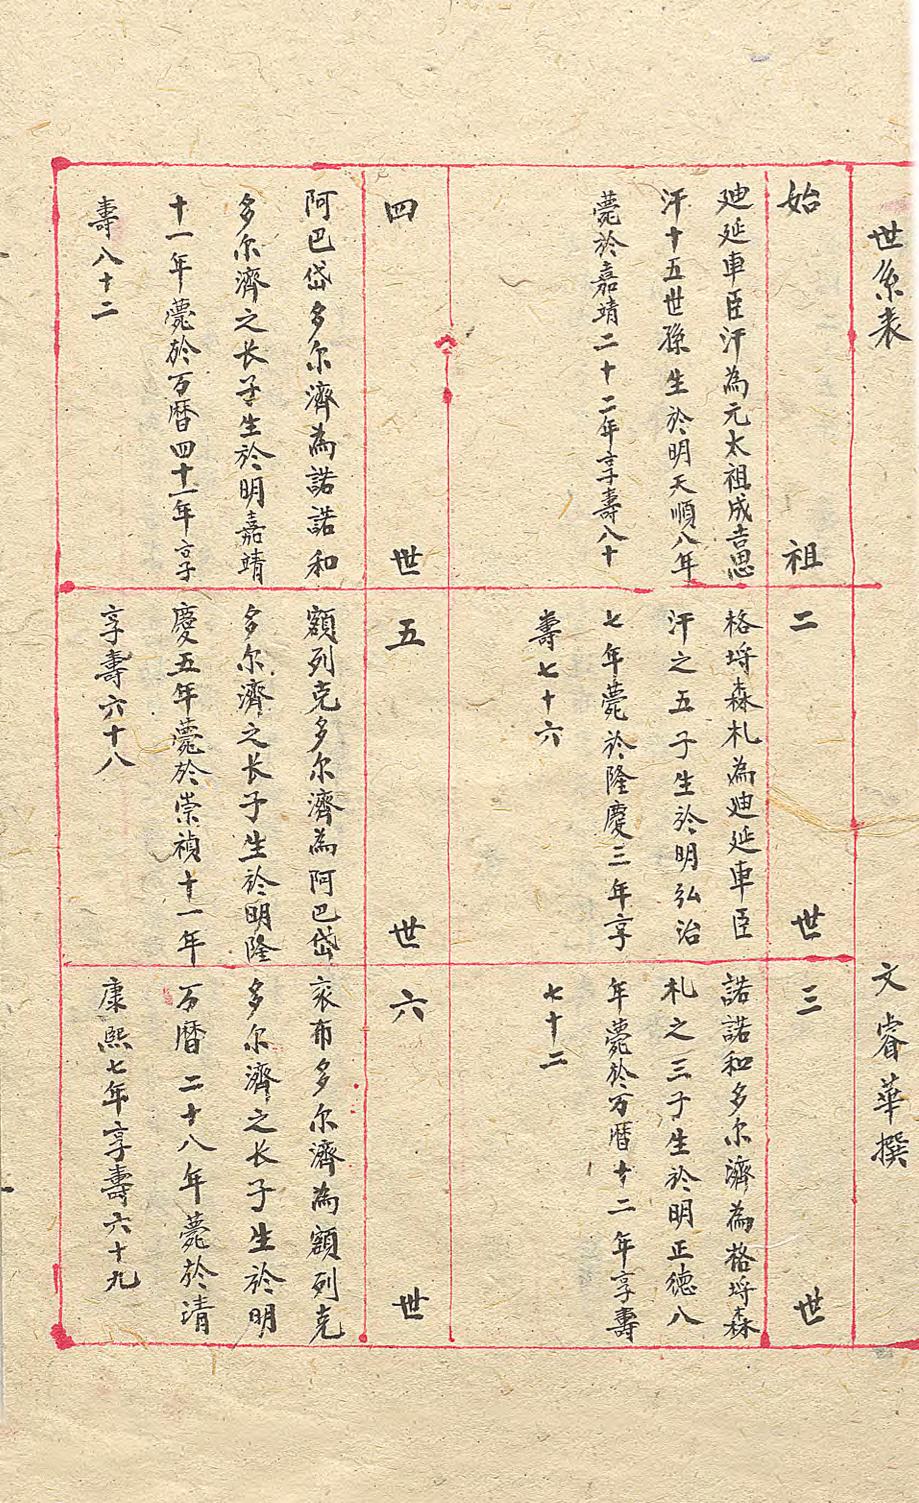 世系表
文睿華撰
始祖
廸延車臣汗為元太祖成吉思
汗十五世孫生於明天順八年
薨於嘉靖二十二年享壽八十
二世
格埒森札為廸延車臣
汗之五子生於明弘治
七年薨於隆慶三年享
壽七十六
三世
諾諾和多尔濟為格埒森
札之三子生於明正德八
年薨於万曆十二年享壽
七十二
四世
阿巴岱多尔濟為諾諾和
多尔濟之长子生於明嘉靖
十一年薨於万曆四十一年享
壽八十二
五世
額列克多尔濟為阿巴岱
多尔濟之长子生於明隆
慶五年薨於崇禎十一年
享壽六十八
六世
衮布多尔濟為額列克
多尔濟之长子生於明
万曆二十八年薨於清
康熙七年享壽六十九